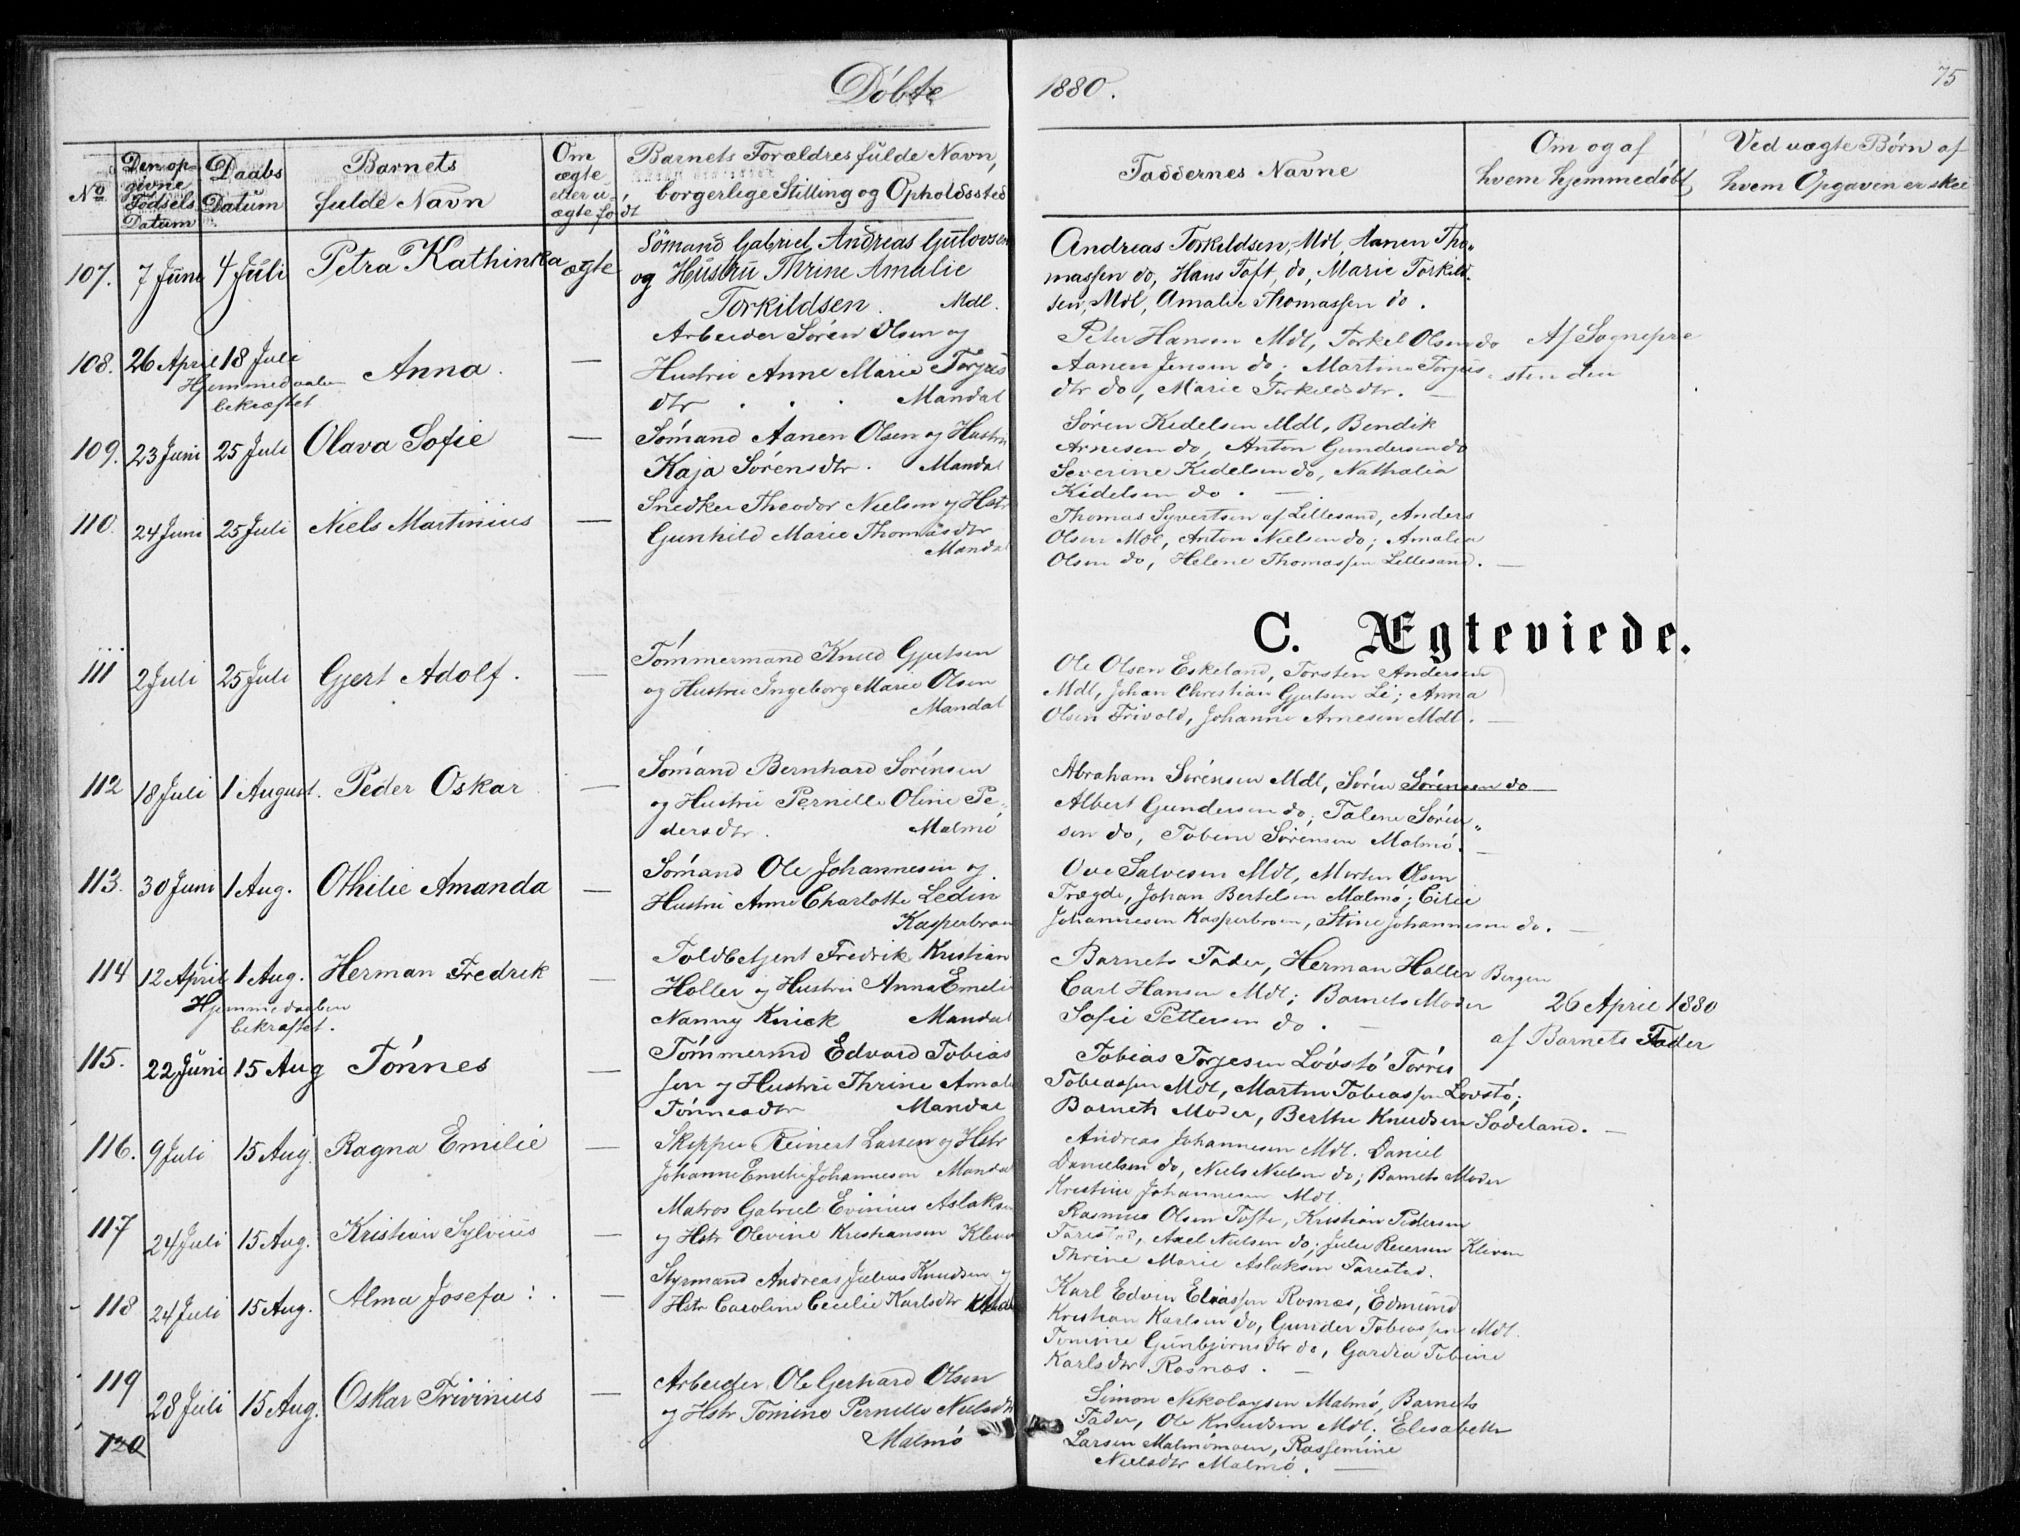 Döbte
1880.
75
No
Den opgivne Födsels Datum
Daabs Datum
Barnets fulde Navn
Om ægte eller uægte födt
Barnets Forældres fulde Navn, borgerlige Stilling og Opholdssted
Faddernes Navne
Om og af hvem hjemmedöbt
Ved uægte Börn af hvem Opgaven er skee
107. 7 Juni 4 Juli Petra Kathinka ægte
Sömand Gabriel Andreas Gulovsen
og Hustru Thrine Amalie
Torkildsen. Mdl.
Andreas Torkildsen, Mdl, Aanen Tho-
massen do, Hans Toft do, Marie Torkild-
sen, Mdl, Amalie Thomassen do.
108. 26 April 18 Juli Anna. —
Hjemmedaaben
bekræftet
Arbeider Sören Olsen og
Hustru Anne Marie Torjus
dtr . . . Mandal
Peter Hansen Mdl, Torkel Olsen do
Aanen Jensen do; Martine Torjus-
dtr do, Marie Torkildsdtr. —
Af Sognepre
sten den
109. 23 Juni 25 Juli Olava Sofie —
Sömand Aanen Olsen og Hustru
Kaja Sörensdtr. Mandal
Sören Kidelsen Mdl, Bendik
Arnesen do, Anton Gundersen do
Severine Kidelsen do, Nathalia
Kidelsen do. —
110. 24 Juni 25 Juli Niels Martinius —
Snedker Theodor Nielsen og Hstr
Gunhild Marie Thomasdtr
Mandal
Thomas Syvertsen af Lillesand, Anders
Olsen Mdl, Anton Nielsen do; Amalia
Olsen do, Helene Thomassen Lillesand. —
C. Ægteviede.
111 2 Juli 25 Juli Gjert Adolf. —
Tömmermand Knud Gjertsen
og Hustru Ingeborg Marie Olsen
Mandal
Ole Olsen Eskeland, Torsten Andersen
Mdl, Johan Christian Gjertsen Li; Anna
Olsen Frivold, Johanne Arnesen Mdl. —
112 18 Juli 1 August. Peder Oskar. —
Sömand Bernhard Sörensen
og Hustru Pernille Oline Pe-
dersdtr. Malmö
Abraham Sörensen Mdl, Sören Sörensen do
Albert Gundersen do; Talene Sören-
sen do, Tobine Sörensen Malmö. —
113. 30 Juni 1 Aug. Othilie Amanda —
Sömand Ole Johannesen og
Hustru Anne Charlotte Ledin
Kasperbroen
Ove Salvesen Mdl, Morten Olsen
Trægde, Johan Bertelsen Malmö; Cilie
Johannesen Kasperbroen, Stine Johannesen do. —
114 12 April 1 Aug. Herman Fredrik —
Hjemmedaaben
bekræftet.
Toldbetjent Fredrik Kristian
Holler og Hustru Anna Emilie
Nanny Knick Mandal
Barnets Fader, Herman Holler Bergen
Carl Hansen Mdl; Barnets Moder
Sofie Pettersen do. —
26 April 1880
af Barnets Fader
115. 22 Juni 15 Aug Tönnes —
Tömmermd Edvard Tobias
sen og Hustru Thrine Amalie
Tönnesdtr Mandal
Tobias Torjesen Lövstö Törres
Tobiassen Mdl, Martin Tobiassen Lovstö;
Barnets Moder, Berthe Knudsen Sodeland. —
116. 9 Juli 15 Aug. Ragna Emilie —
Skipper Reinert Larsen og Hstr
Johanne Emilie Johannesen Mandal
Andreas Johannesen Mdl. Daniel
Danielsen do, Niels Nielsen do; Barnets Moder
Kristine Johannesen Mdl.
117 24 Juli 15 Aug. Kristian Sylvius —
Matros Gabriel Evinius Aslaksen
og Hstr Olevine Kristiansen Kleven
Rasmus Olsen Tofte, Kristian Pedersen
Farestad, Axel Nielsen do; Julie Reiersen Kleven
Thrine Marie Aslaksen Farestad.
118 24 Juli 15 Aug. Alma Josefa: . —
Styrmand Andreas Julius Knudsen og
Hstr Caroline Cecilie Karlsdtr
Karl Edvin Eliassen Rosnæs, Edmund
Kristian Karlsen do, Gunder Tobiassen Mdl.
Tomine Gunbjörnsdtr do, Gardia Tobine
Karlsdtr Rosnæs. —
119 28 Juli 15 Aug. Oskar Trivinius —
Arbeider Ole Gerhard Olsen
og Hstr Tomine Pernille Nielsdtr
Malmö
Simon Nikolaysen Malmö, Barnets
Fader, Ole Knudsen Mdl. Elisabeth
Larsen Malmömoen, Rassemine
Nielsdtr Malmö. —
120